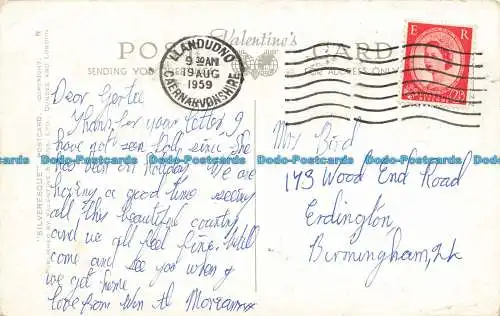 POST
Valentine's
CARD
SENDING YOU
FOR ADDRESS ONLY
LLANDUDNO
9 30 AM
19 AUG
1959
CAERNARVONSHIRE
E R
"SILVERESQUE" POSTCARD. COPYRIGHT.
DUNDEE AND LONDON
Dear
Thanks for your letter I
have not seen since she
has been on holiday. We are
having a good time seeing
all this beautiful country
and we all feel fine. Will
come and see you when
we get home
love from Win &
Mrs Bird
Wood End Road
Erdington
Birmingham, 24
Dodo-Postcards Dodo-Postcards Dodo-Postcards Dodo-Postcards Dodo-Postcards